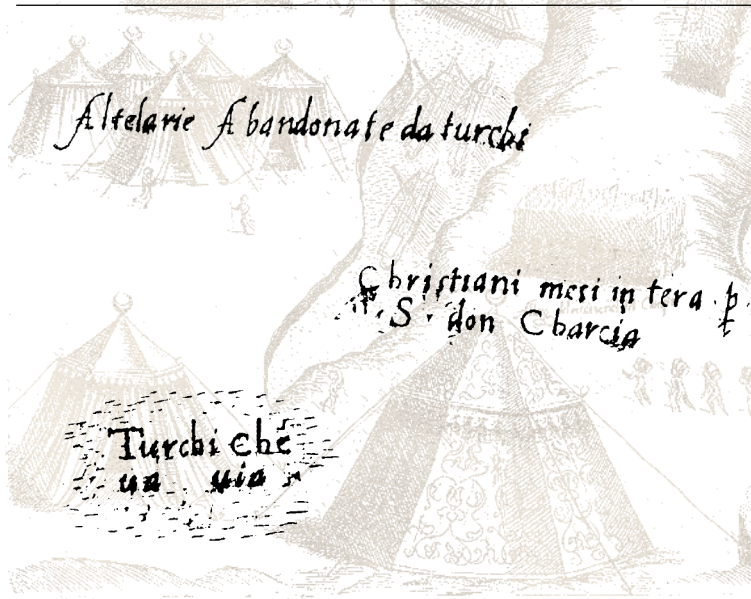 Altelarie Abandonate da turchi
Christiani mesi in tera p
S. don Charcia
Turchi Che
ua uia